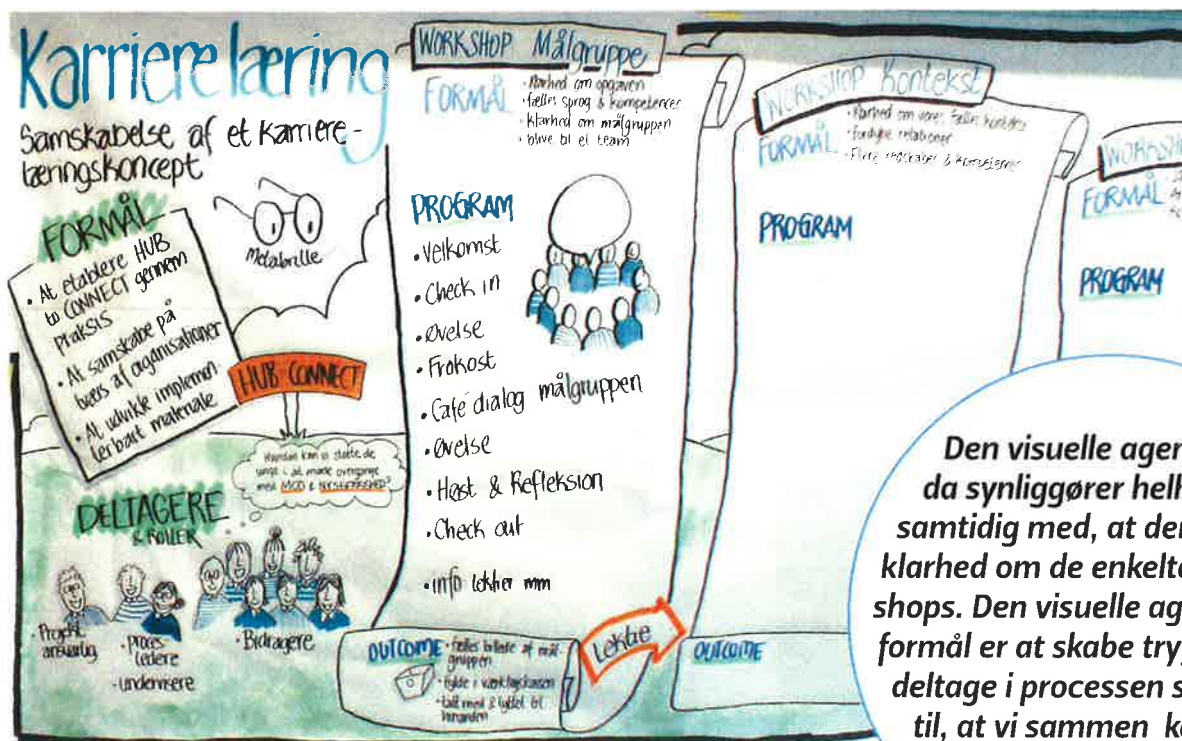 Karriere læring
Samskabelse af et karriere-
læringskoncept
FORMÅL
• At etablere HUB
to CONNECT gennem
praksis
• At samskabe på
tværs af organisationer
• At udvikle implemen-
terbart materiale
Metabrille
HUB CONNECT
Hvordan kan vi støtte de
unge i at møde overgange
med MOD & NYSGERRIGHED?
DELTAGERE
& ROLLER
• Projekt
ansvarlig
• Proces
ledere
• undervisere
• Bidragere
WORKSHOP Målgruppe
FORMÅL
• Klarhed om opgaven
• fælles sprog & kompetencer
• klarhed om målgruppen
• blive til et team
PROGRAM
• Velkomst
• Check in
• Øvelse
• Frokost
• Café dialog målgruppen
• Øvelse
• Høst & Refleksion
• Check out
• info lektier mm
OUTCOME
• fælles billede af mål-
gruppen
• fylde i værktøjskassen
• talt med & lyttet til
hinanden
Lektie
WORKSHOP Kontekst
FORMÅL
• Klarhed om vores fælles kontekst
• fordybe relationer
• Flere redskaber & kompetencer
PROGRAM
OUTCOME
WORKSHO
FORMÅL
PROGRAM
Den visuelle agen
da synliggører helh
samtidig med, at den
klarhed om de enkelte
shops. Den visuelle ag
formål er at skabe try
deltage i processen s
til, at vi sammen k